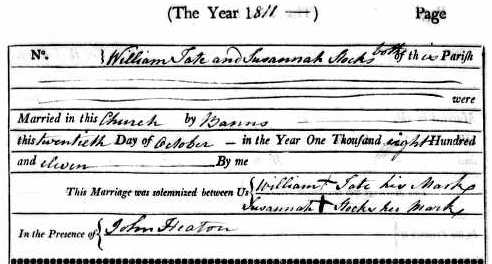 (The Year 1811 —) Page
No. William Tate and Susannah Stocks both of this Parish
were
Married in this Church by Banns
this twentieth Day of October — in the Year One Thousand eight Hundred
and eleven By me
This Marriage was solemnized between Us William + Tate his Mark
Susannah + Stocks her Mark
In the Presence of John Heaton